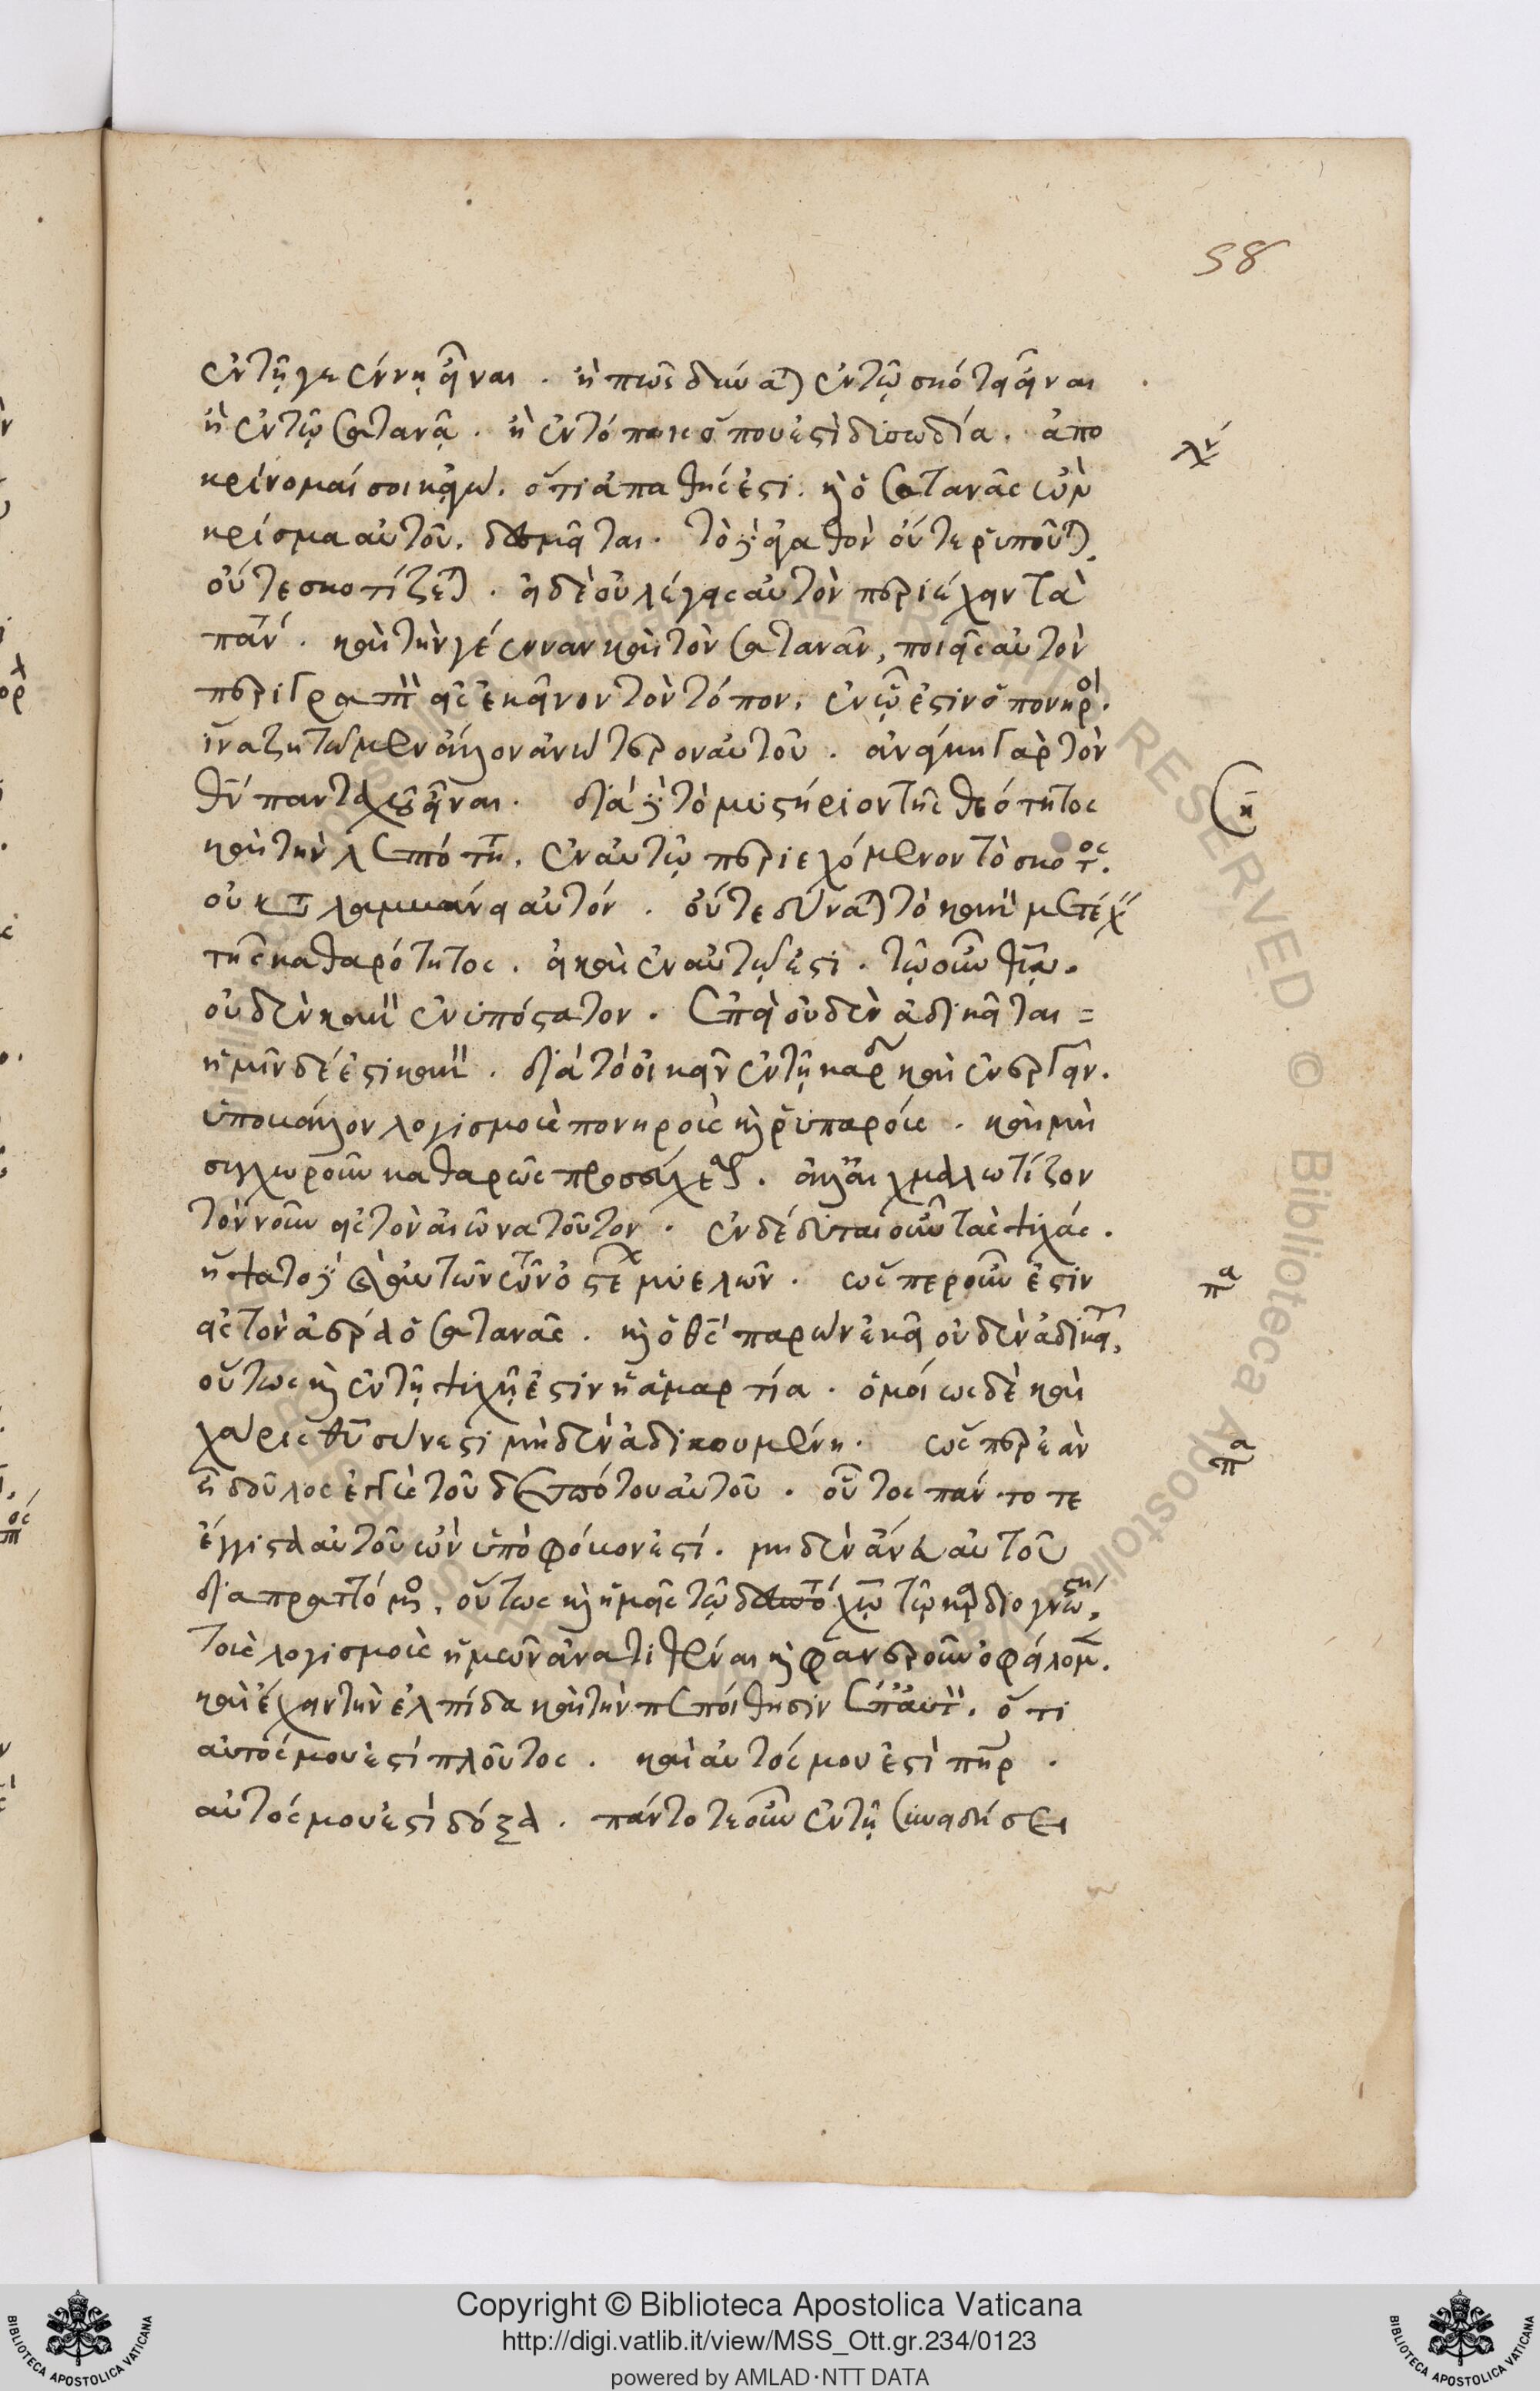 58
ἐν τῇ γεέννῃ εἶναι. ἢ πῶς δύναται ἐν τῷ σκότει εἶναι
ἢ ἐν τῷ σατανᾷ. ἢ ἐν τόποις ὅπου ἐστὶ δισωδία. ἀπο
κρίνομαί σοι κἀγώ. ὅτι ἀπαθής ἐστι. καὶ ὁ σατανᾶς ὢν
κρίσμα αὐτοῦ. δεσμεῖται. τὸ γὰρ ἀγαθὸν οὔτε ῥυποῦται
οὔτε σκοτίζεται. εἰ δὲ οὐ λέγεις αὐτὸν περιέχειν τὰ
πάντα. καὶ τὴν γέενναν καὶ τὸν σατανᾶν, ποιεῖς αὐτὸν
περίγραπτον εἰς ἐκεῖνον τὸν τόπον, ἐν ᾧ ἐστιν ὁ πονηρός.
ἵνα ζητῶμεν ἄλλον ἀνώτερον αὐτοῦ. ἀνάγκη γὰρ τὸν
θν πανταχοῦ εἶναι. διὰ γὰρ τὸ μυστήριον τῆς θεότητος
καὶ τὴν λεπτότητα. ἐν αὐτῷ περιεχόμενον τὸ σκότος.
οὐ καταλαμβάνει αὐτόν. οὔτε δύναται τὸ κακὸν μετέχειν
τῆς καθαρότητος. εἰ καὶ ἐν αὐτῷ ἐστι. τῷ οὖν θεῷ.
οὐδὲν κακὸν ἐνυπόστατον. ἐπεὶ οὐδὲν ἀδικεῖται =
ἡμῖν δέ ἐστι κακόν. διὰ τὸ οἰκεῖν ἐν τῇ καρδίᾳ καὶ ἐνεργεῖν.
ὑποβάλλον λογισμοὺς πονηροὺς καὶ ῥυπαρούς. καὶ μὴ
συγχωροῦν καθαρῶς προσεύχεσθαι. ἀλλ' αἰχμαλωτίζον
τὸν νοῦν εἰς τὸν αἰῶνα τοῦτον. ἐνδέδυται οὖν τὰς ψυχάς.
ἥψατο γὰρ καὶ αὐτῶν τῶν ὀστέων μυελῶν. ὥσπερ οὖν ἐστιν
εἰς τὸν ἀέρα ὁ σατανᾶς. καὶ ὁ θς παρὼν ἐκεῖ οὐδὲν ἀδικεῖται,
οὕτως καὶ ἐν τῇ ψυχῇ ἐστιν ἡ ἁμαρτία. ὁμοίως δὲ καὶ
χάρις θυ σύνεστι μηδὲν ἀδικουμένη. ὥσπερ ἐὰν
ᾖ δοῦλος ἐγγὺς τοῦ δεσπότου αὐτοῦ. οὗτος πάντοτε
ἔγγιστα αὐτοῦ ὢν ὑπὸ φόβον ἐστί. μηδὲν ἄνευ αὐτοῦ
διαπραττόμενος, οὕτως καὶ ἡμεῖς τῷ δεσπότῃ χῷ τῷ καρδιογνώστῃ,
τοὺς λογισμοὺς ἡμῶν ἀνατιθέναι καὶ φανεροῦν ὀφείλομεν.
καὶ ἔχειν τὴν ἐλπίδα καὶ τὴν πεποίθησιν ἐπ' αὐτόν. ὅτι
αὐτός μου ἐστὶ πλοῦτος. καὶ αὐτός μου ἐστὶ πηρ.
αὐτός μου ἐστὶ δόξα. πάντοτε οὖν ἐν τῇ συνειδήσει
Copyright © Biblioteca Apostolica Vaticana
http://digi.vatlib.it/view/MSS_Ott.gr.234/0123
powered by AMLAD·NTT DATA